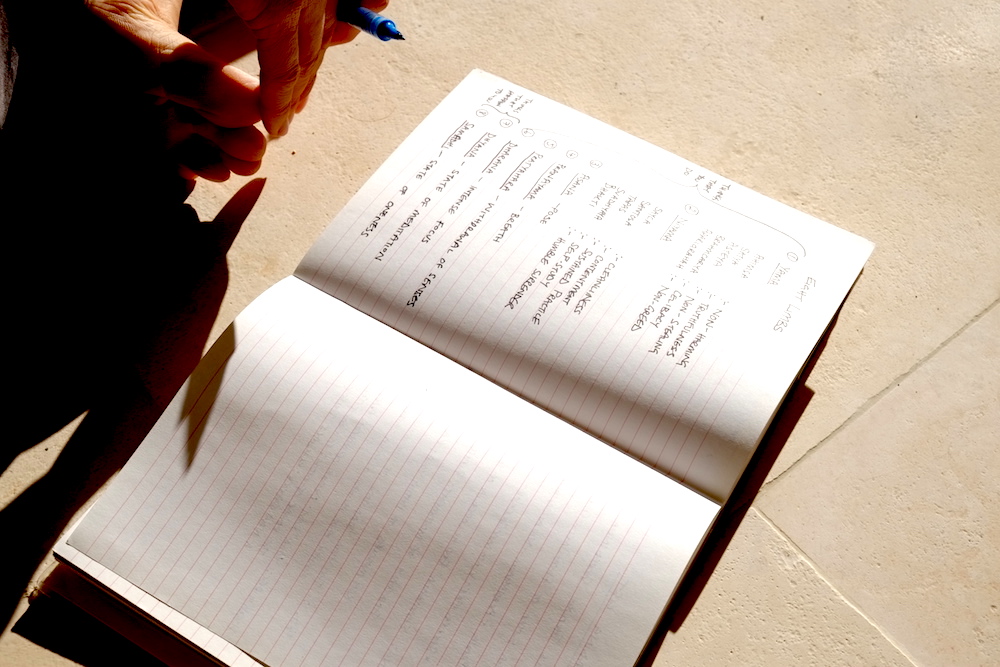 EIGHT LIMBS
① YAMA
AHIMSA - NON-HARMING
SATYA - TRUTHFULNESS
ASTEYA - NON STEALING
- CELIBACY
- NON-GREED
②
- CLEANLINESS
SANTOSA - CONTENTMENT
TAPAS - SUSTAINED PRACTICE
SVADHYAYA - SELF-STUDY
BHAKTI - HUMBLE SURRENDER
③ ASANA - POSE
④ PRANAYAMA - BREATH
⑤ PRATYAHARA - WITHDRAWAL OF SENSES
⑥ DHARANA - INTENSE FOCUS
⑦ DHYANA - STATE OF MEDITATION
⑧ SAMADHI - STATE OF ONENESS